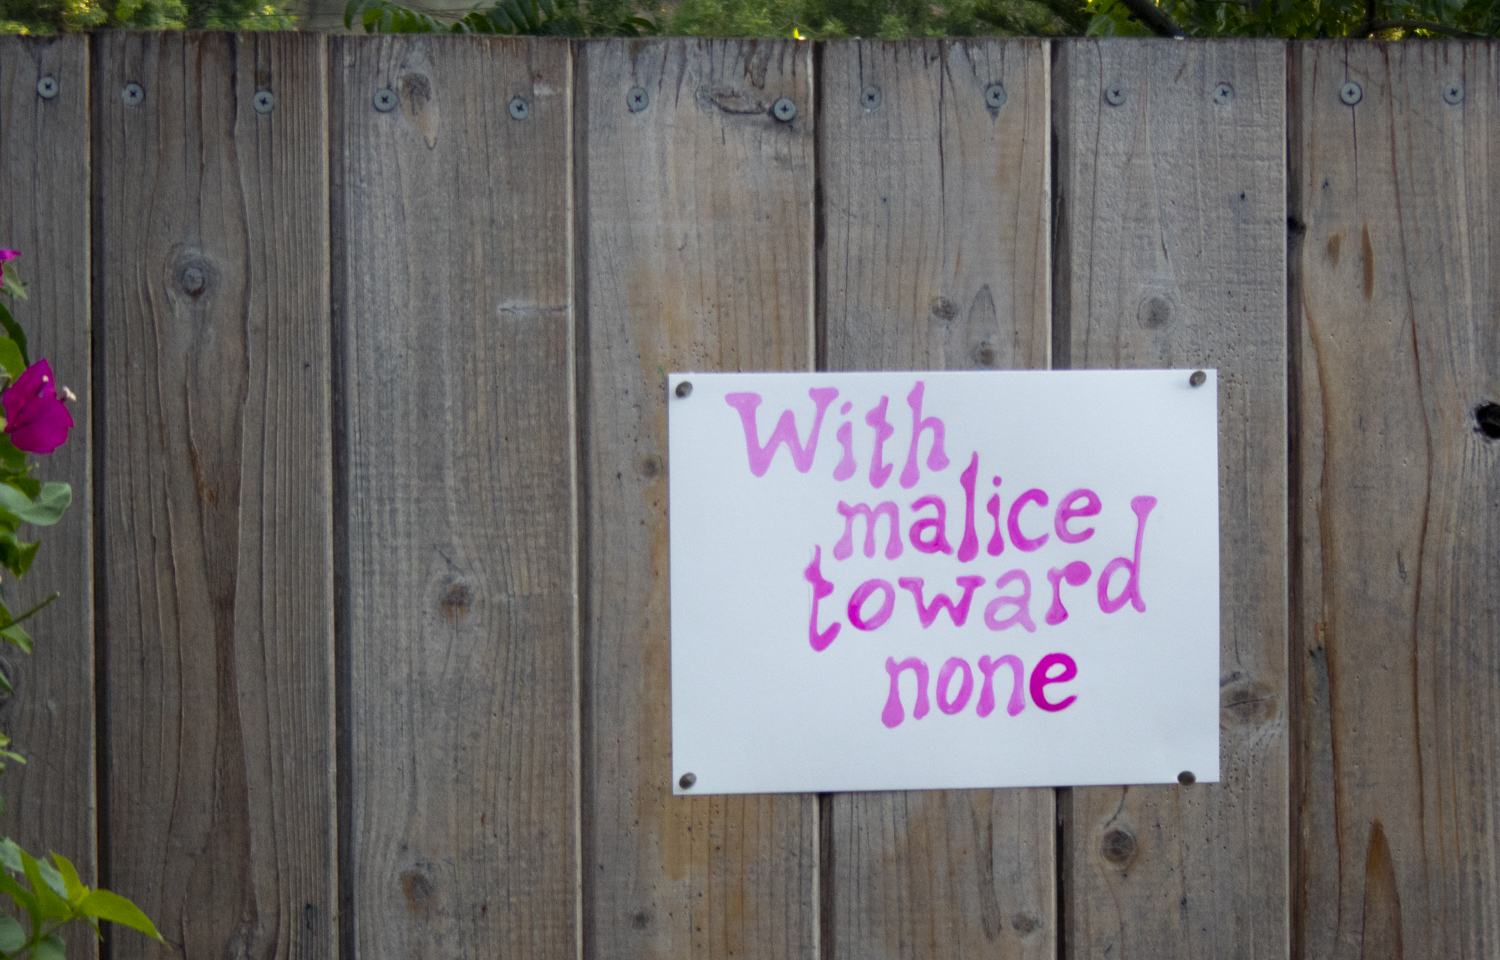 With
malice
toward
none